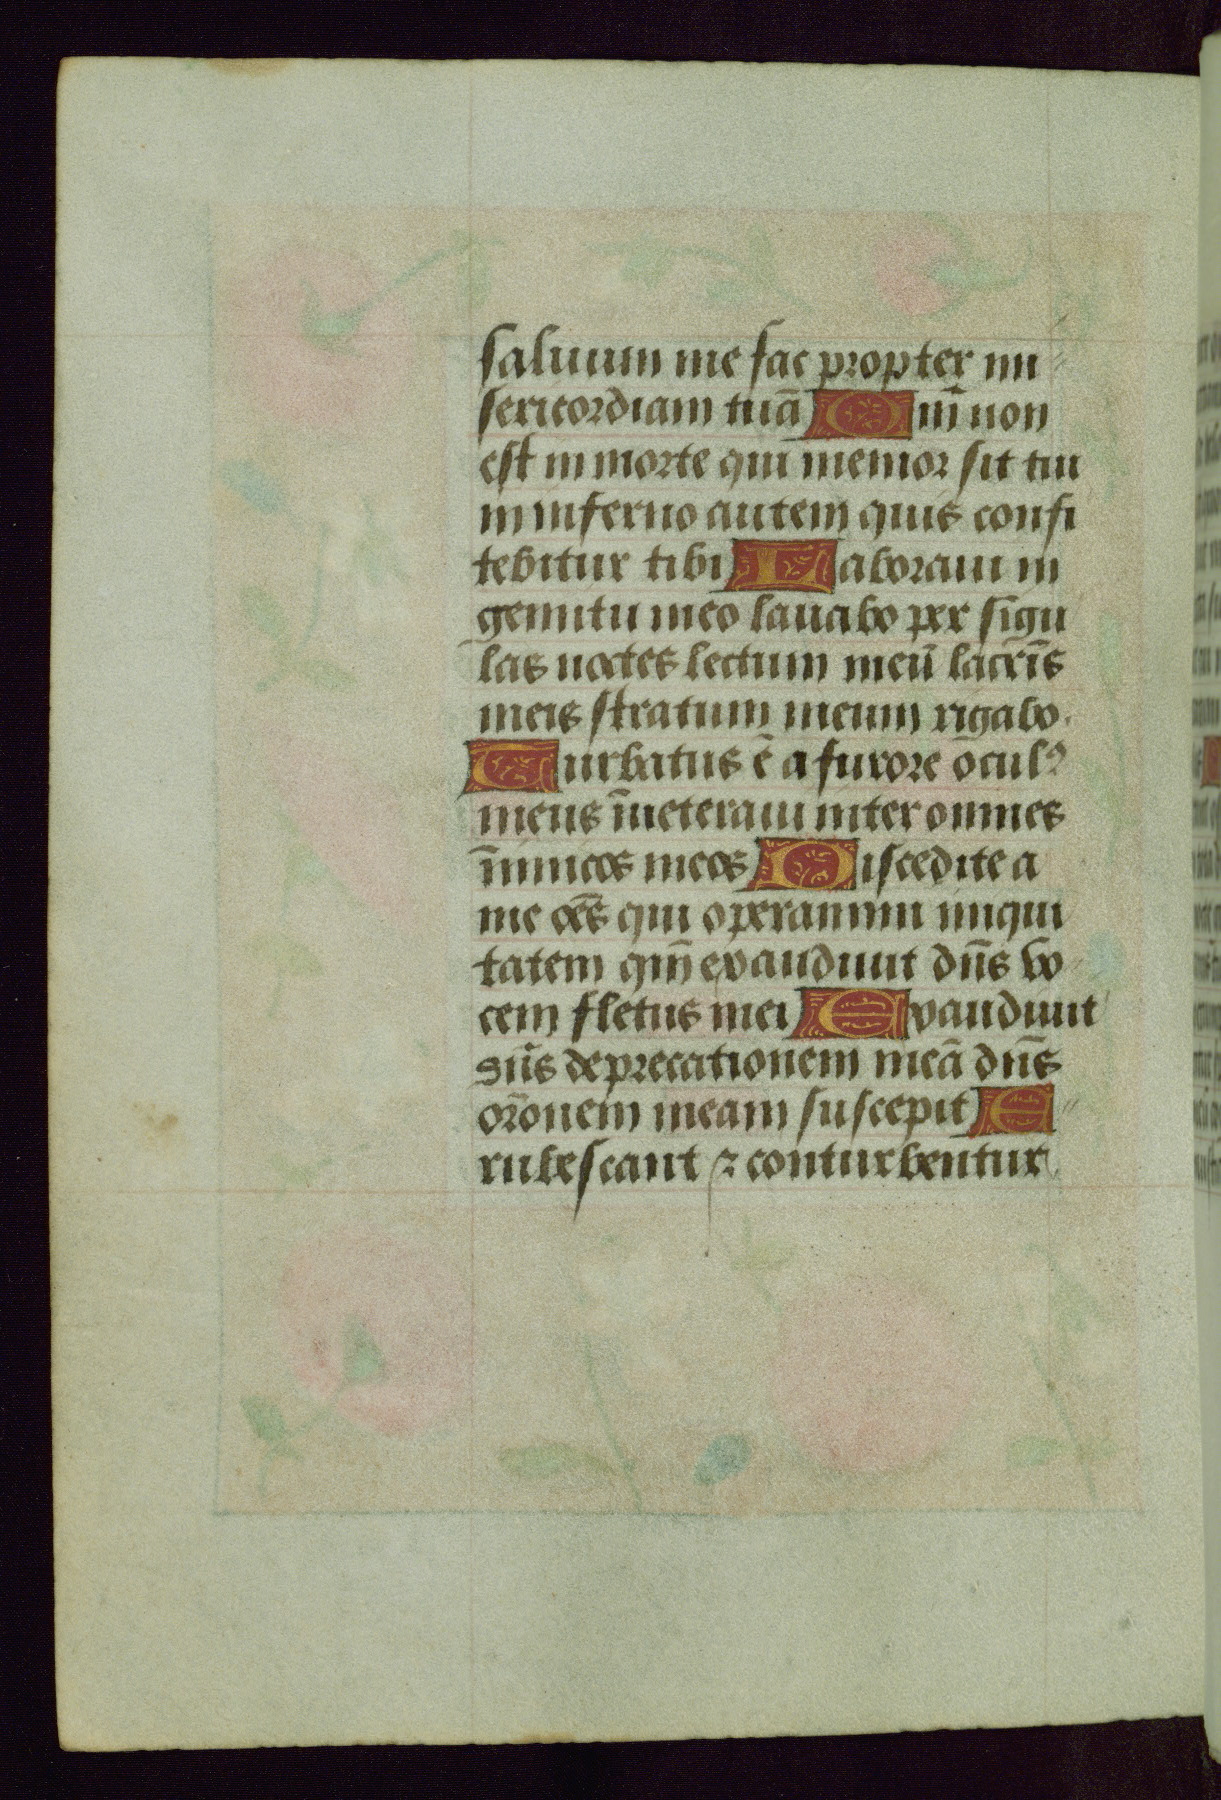 saluum me fac propter mi
sericordiam tuā Qm̄ non
est in morte qui memor sit tui
in inferno autem quis confi
tebitur tibi Laboraui in
gemitu meo lauabo per sīgu
las noctes lectum meū lacrīs
meis stratum meum rigabo.
Turbatus ē a furore oculꝰ
meus īueteraui inter omnes
īnimicos meos Discedite a
me oēs qui operamini iniqui
tatem qm̄ exaudiuit dn̄s vo
cem fletus mei Exaudiuit
dn̄s deprecationem meā dn̄s
orōnem meam suscepit E
rubescant ⁊ conturbentur